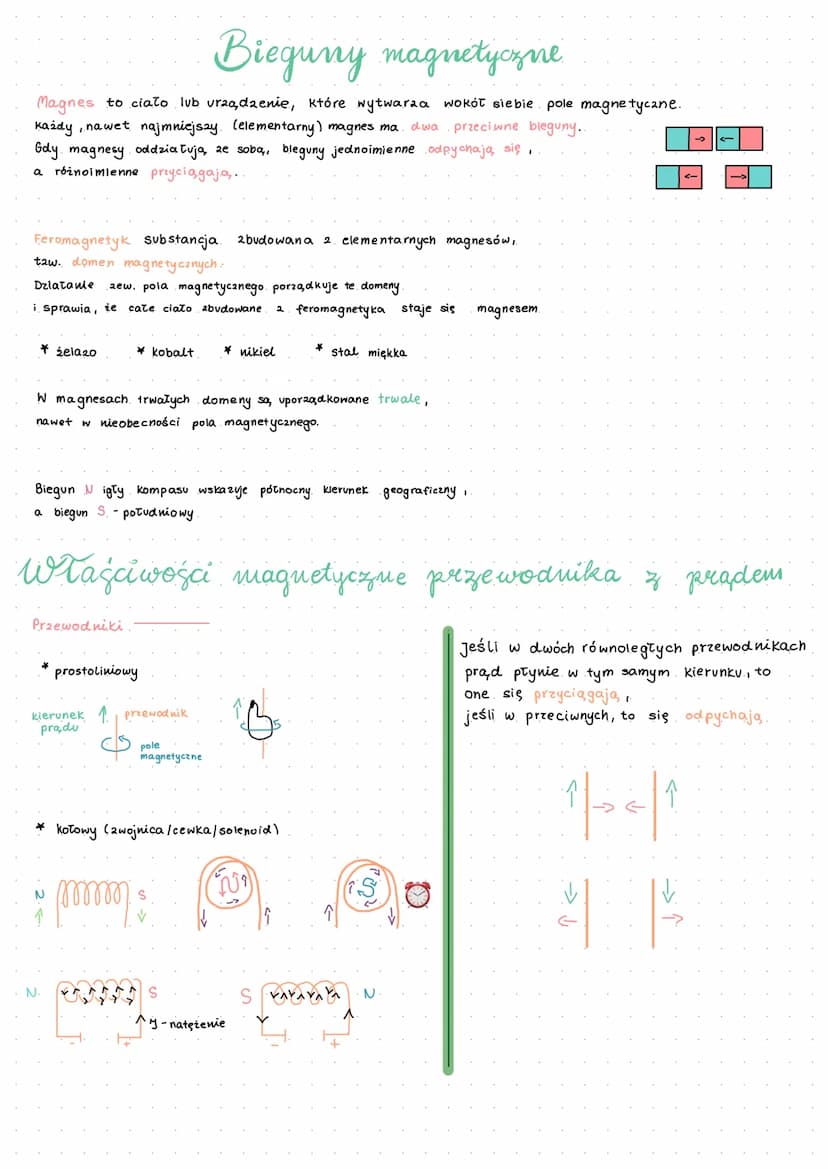 Bieguny magnetyczne
Magnes to ciało lub urządzenie, które wytwarza wokół siebie pole magnetyczne.
Każdy, nawet najmniejszy (elementarny) magnes ma dwa przeciwne bieguny.
Gdy magnesy oddziałują ze sobą, bieguny jednoimienne odpychają się,
a różnoimienne przyciągają.
Feromagnetyk substancja zbudowana z elementarnych magnesów,
tzw. domen magnetycznych.
Działanie zew. pola magnetycznego porządkuje te domeny
i sprawia, że całe ciało zbudowane z feromagnetyka staje się magnesem
* żelazo * kobalt * nikiel * stal miękka
W magnesach trwałych domeny są uporządkowane trwale,
nawet w nieobecności pola magnetycznego.
Biegun N igły kompasu wskazuje północny kierunek geograficzny,
a biegun S - południowy
Właściwości magnetyczne przewodnika z prądem
Przewodniki
* prostoliniowy
kierunek prądu
przewodnik
pole magnetyczne
* kołowy (zwojnica/cewka/solenoid)
N S N S
N S S N
J - natężenie
- + - +
Jeśli w dwóch równoległych przewodnikach
prąd płynie w tym samym kierunku, to
one się przyciągają,
jeśli w przeciwnych, to się odpychają.